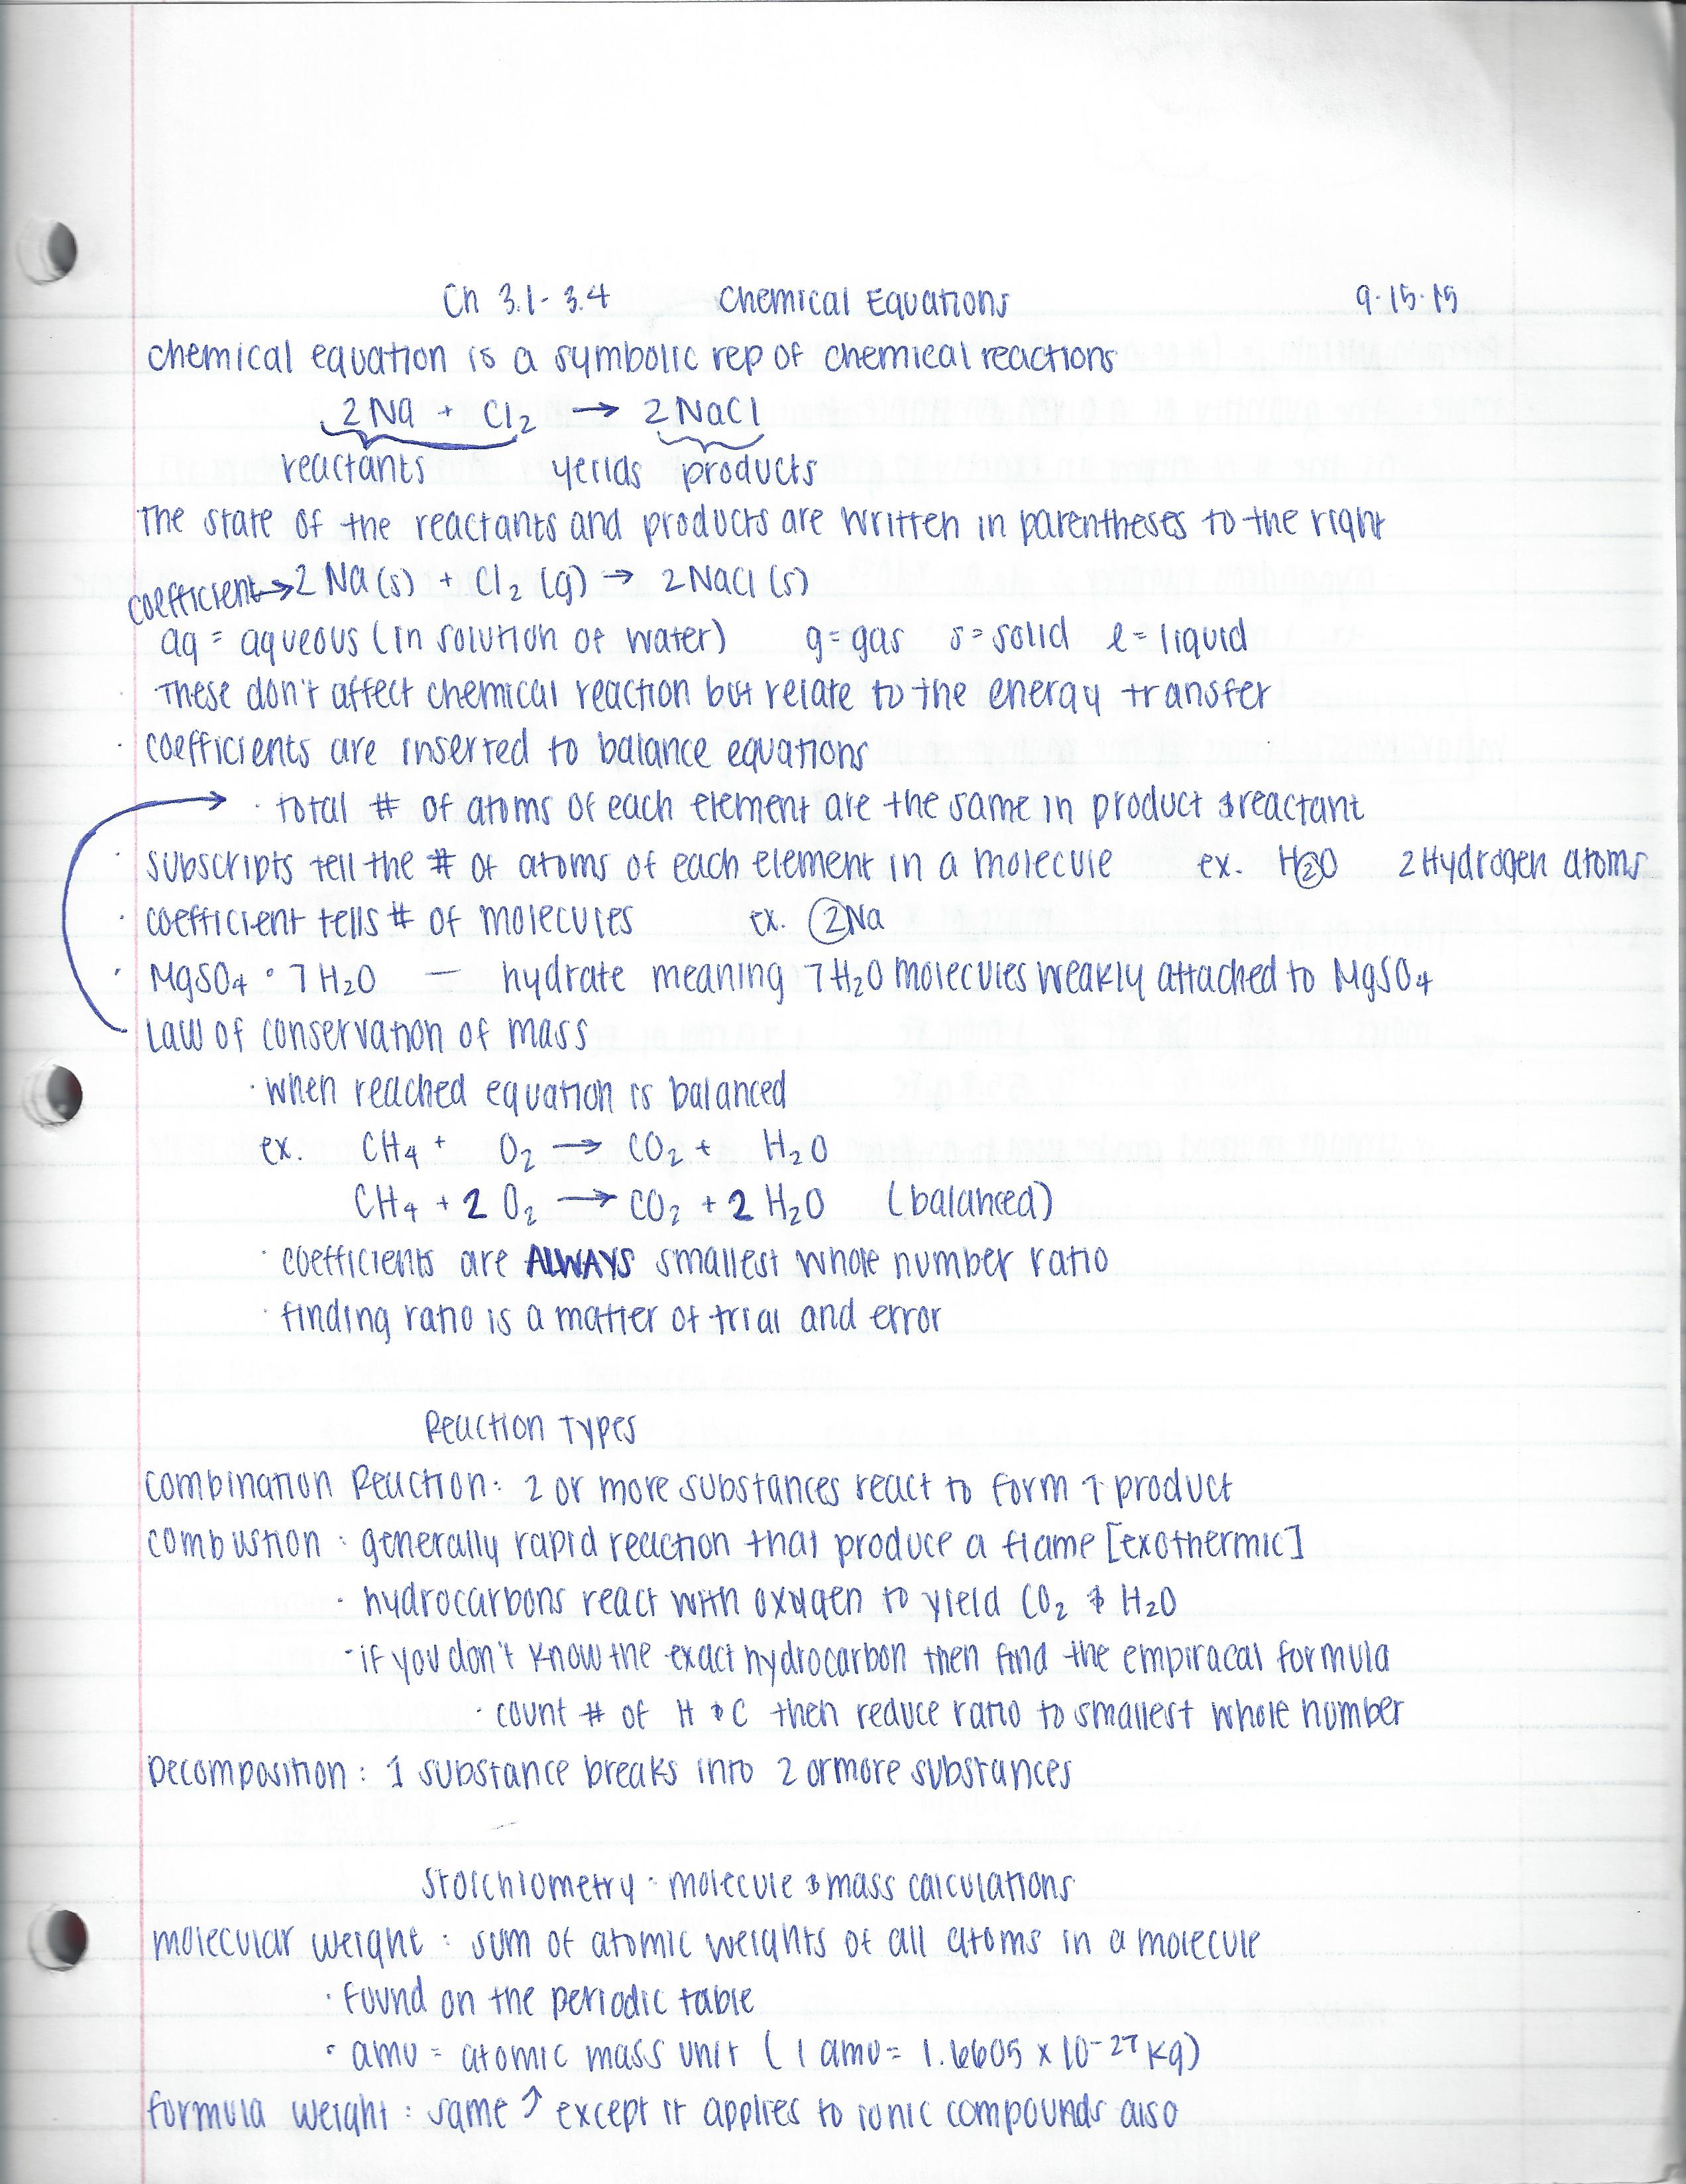 Ch 3.1-3.4 Chemical Equations 9.15.15
chemical equation is a symbolic rep of chemical reactions
2Na + Cl₂ → 2NaCl
reactants yeilds products
The state of the reactants and products are written in parentheses to the right
coefficient→2 Na(s) + Cl₂ (g) → 2NaCl(s)
aq = aqueous (in solution of water) g=gas s=solid l=liquid
· These don't affect chemical reaction but relate to the energy transfer
· coefficients are inserted to balance equations
→ · total # of atoms of each element are the same in product & reactant
· subscripts tell the # of atoms of each element in a molecule ex. H₂O 2 Hydrogen atoms
· coefficient tells # of molecules ex. 2Na
· MgSO₄ · 7H₂O — hydrate meaning 7H₂O molecules weakly attached to MgSO₄
Law of conservation of mass
· when reached equation is balanced
ex. CH₄ + O₂ → CO₂ + H₂O
CH₄ + 2 O₂ → CO₂ + 2 H₂O (balanced)
· coefficients are ALWAYS smallest whole number ratio
· finding ratio is a matter of trial and error
Reaction Types
Combination Reaction: 2 or more substances react to form 1 product
Combustion : generally rapid reaction that produce a flame [exothermic]
· hydrocarbons react with oxygen to yield CO₂ & H₂O
- if you don't know the exact hydrocarbon then find the empiracal formula
· count # of H & C then reduce ratio to smallest whole number
Decomposition : 1 substance breaks into 2 or more substances
Stoichiometry - molecule & mass calculations
molecular weight : sum of atomic weights of all atoms in a molecule
· found on the periodic table
· amu = atomic mass unit ( 1 amu = 1.6605 x 10⁻²⁷ kg)
formula weight : same ↑ except it applies to ionic compounds also